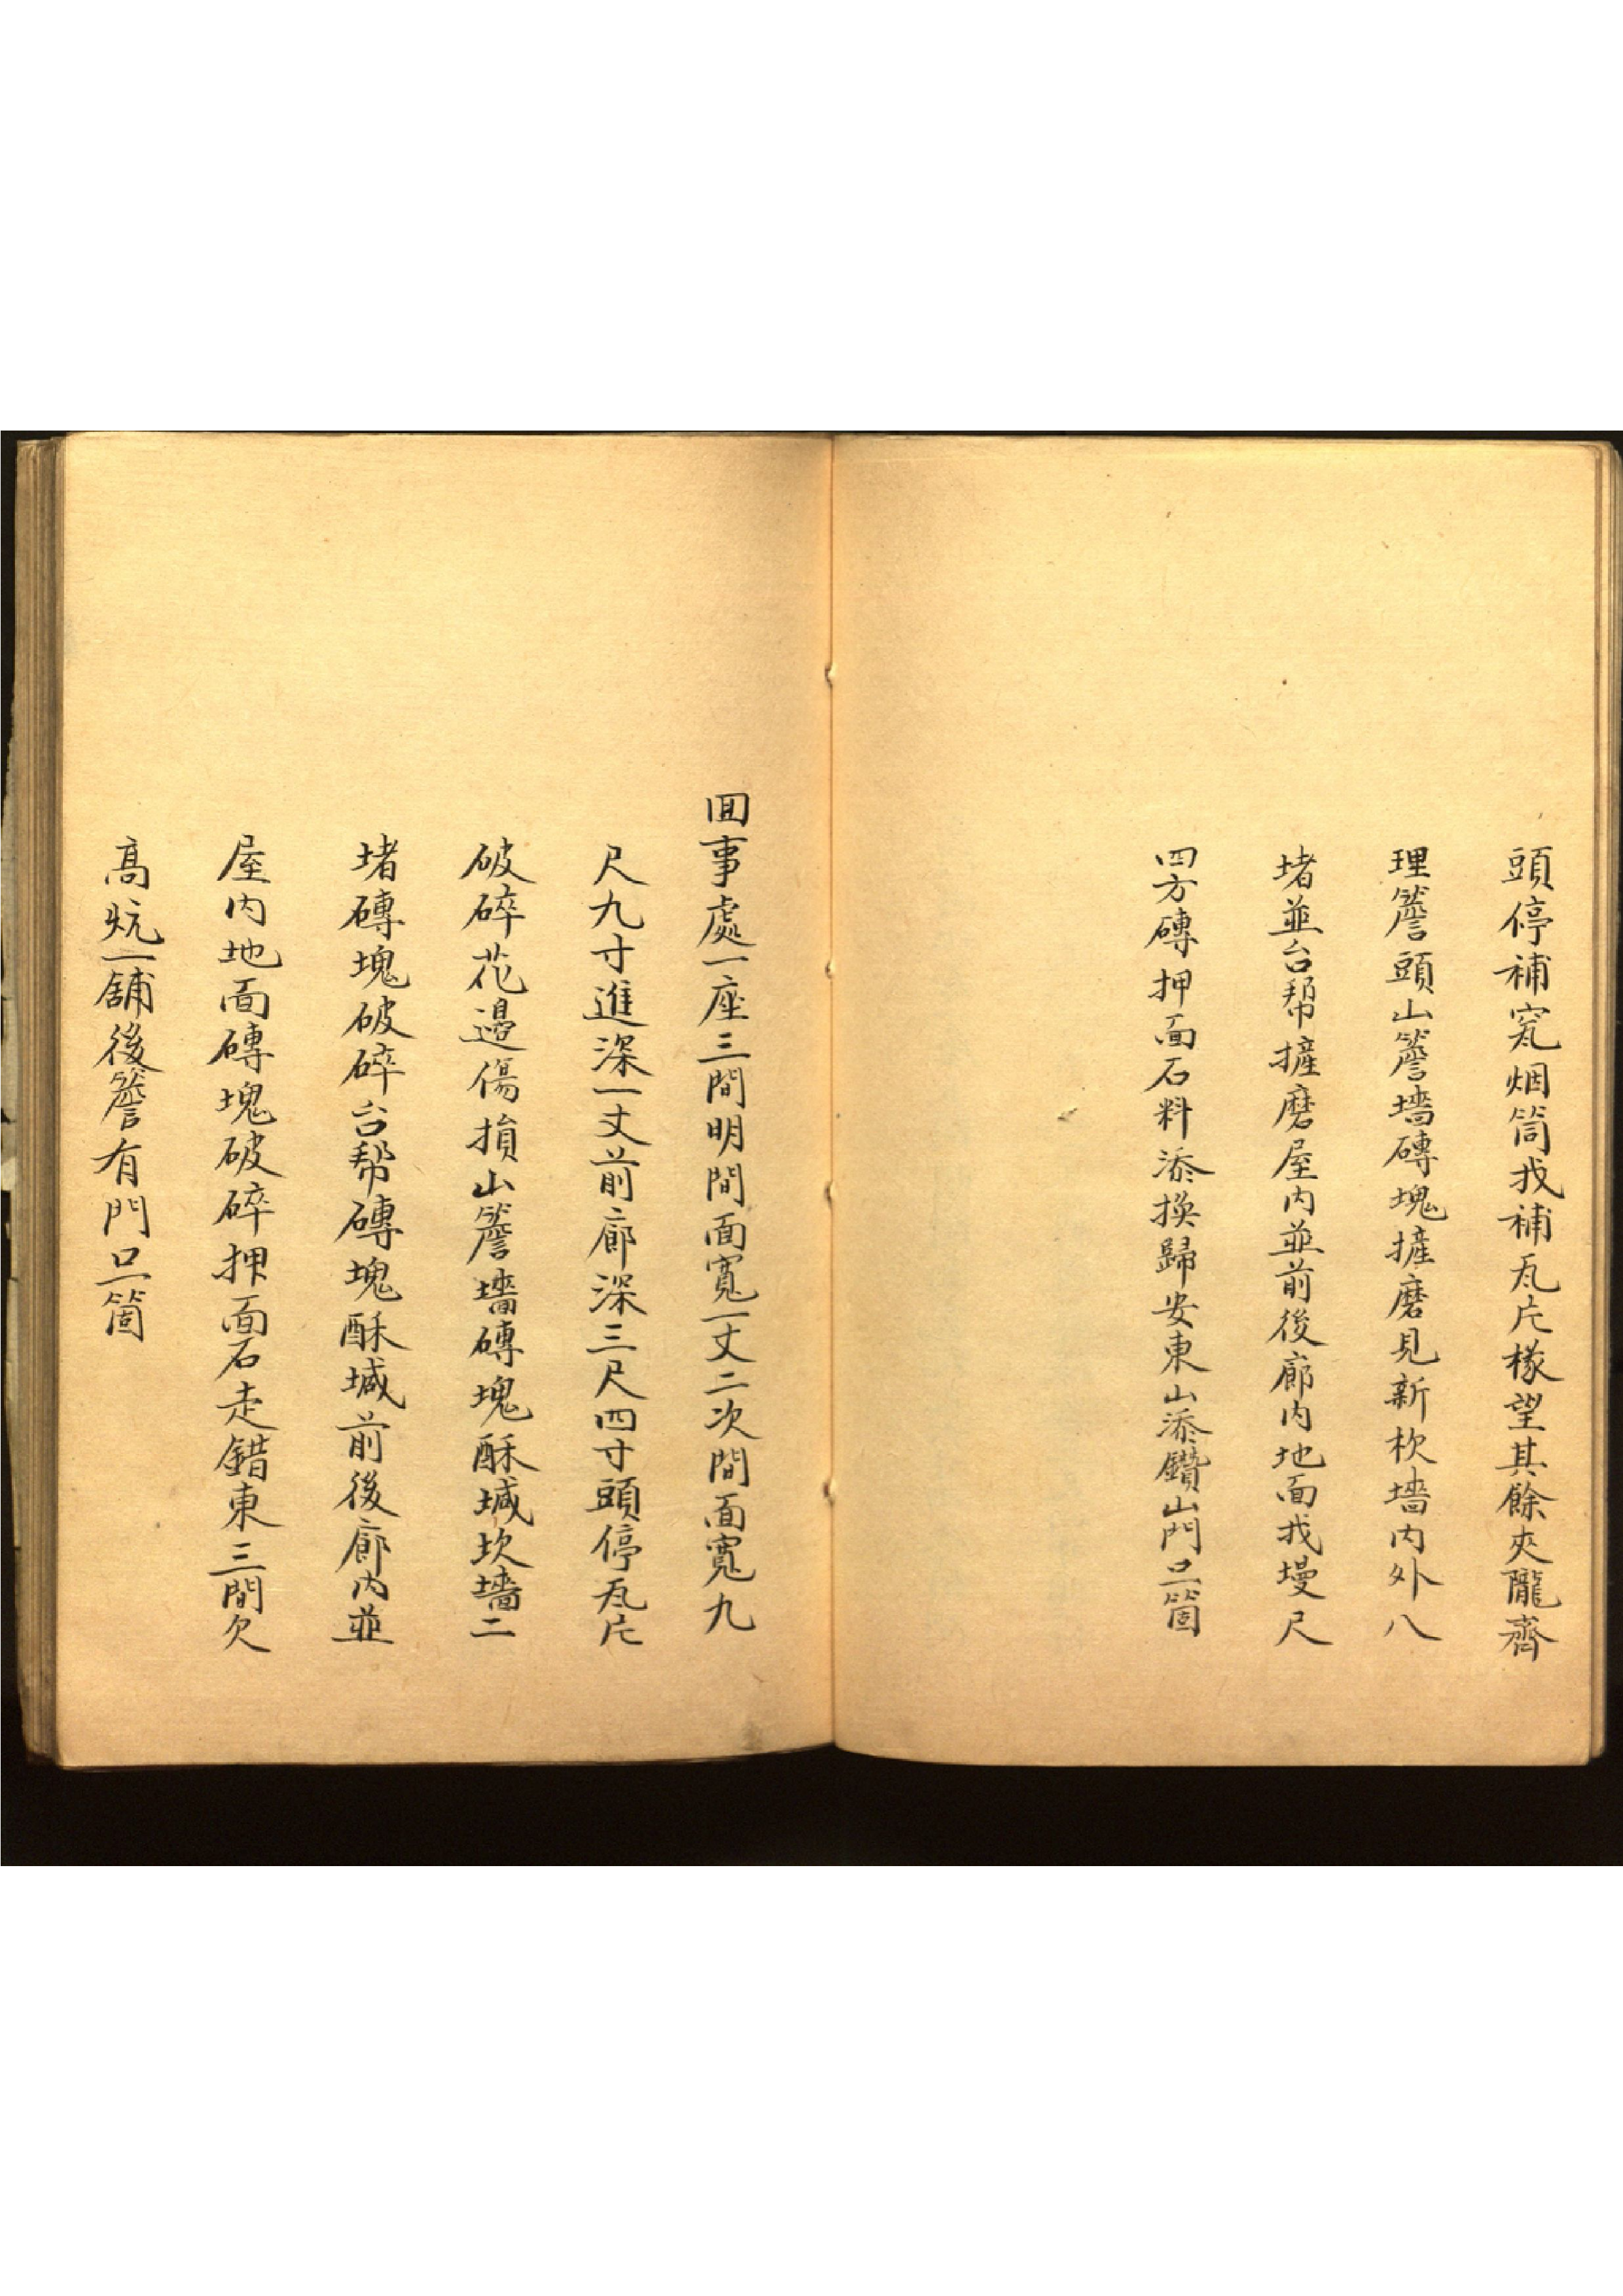 頭停補窊烟筒找補瓦片椽望其餘夾隴齊
理簷頭山簷墻磚塊摌磨見新杴墻内外八
堵並台幫摌磨屋内並前後廊内地面找墁尺
四方磚押面石料添換歸安東山添鑽山門口一箇
回事處一座三間明間面寬一丈二次間面寬九
尺九寸進深一丈前廊深三尺四寸頭停瓦片
破碎花邊傷損山簷墻磚塊酥堿坎墻二
堵磚塊破碎台幫磚塊酥堿前後廊内並
屋内地面磚塊破碎押面石走錯東三間欠
高炕一舖後簷有門口一箇